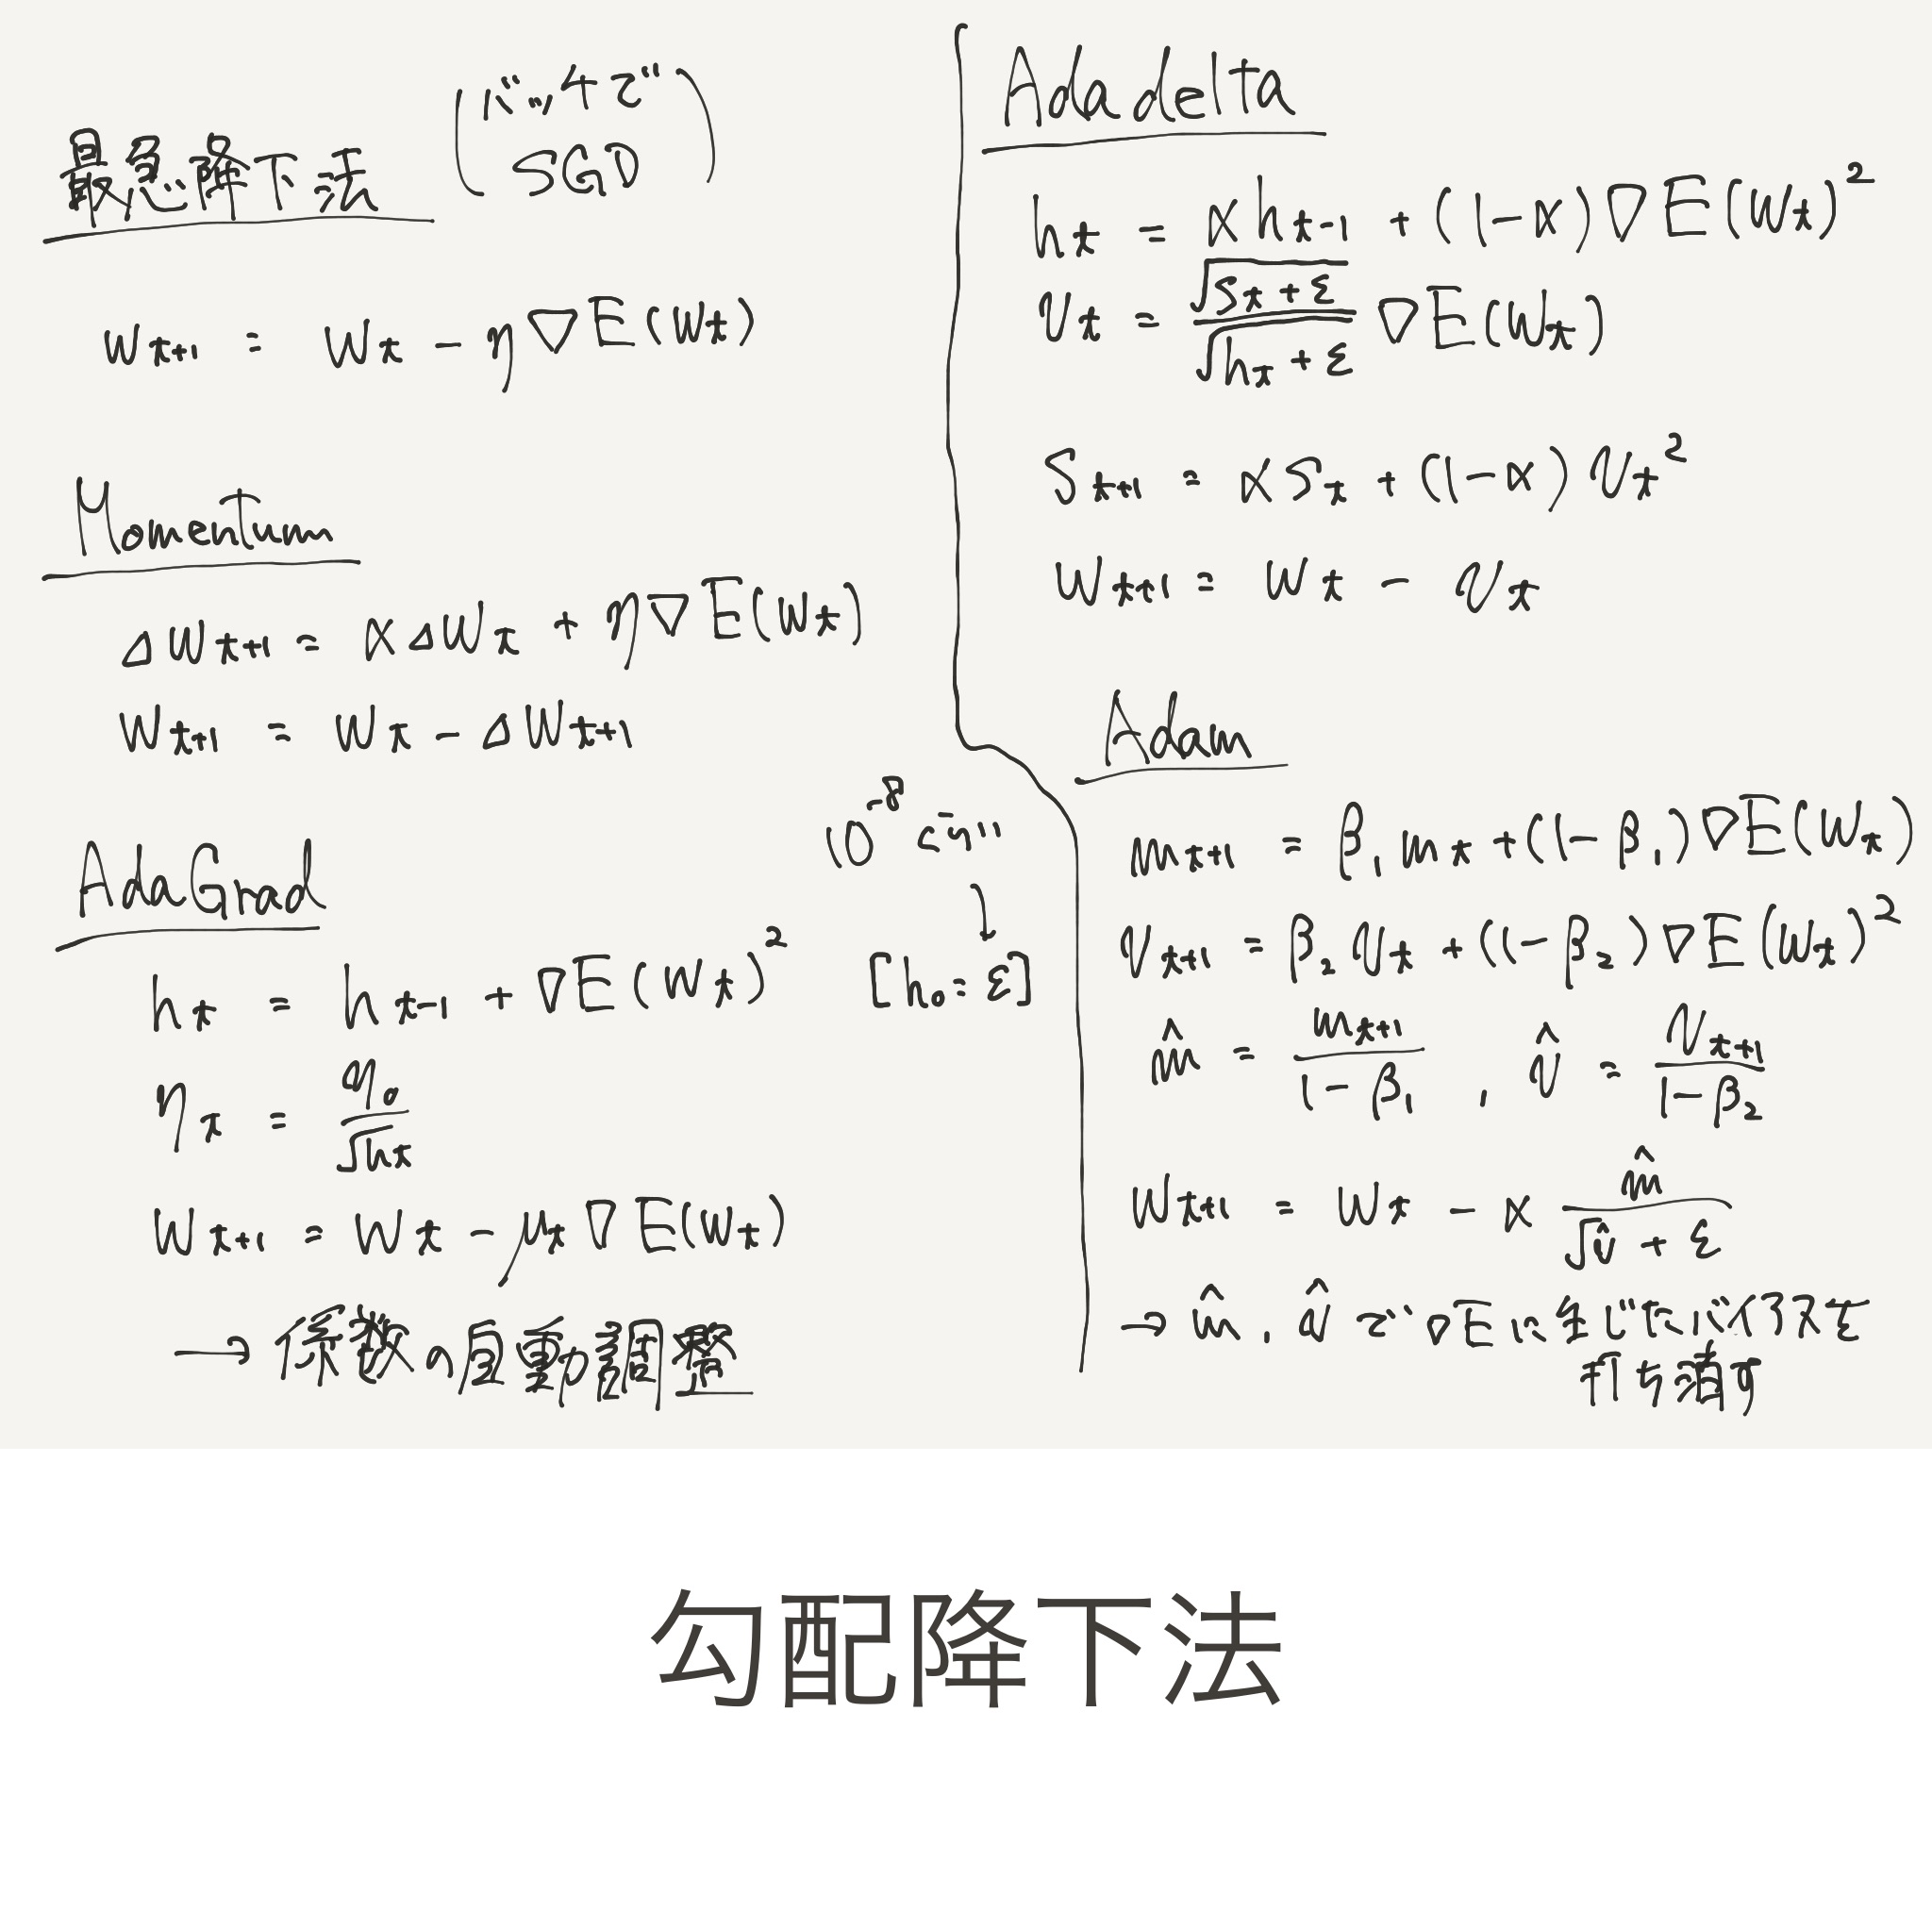 最急降下法
(バッチで
SGD)
w_{t+1} = w_t - η∇E(w_t)
Momentum
Δw_{t+1} = αΔw_t + η∇E(w_t)
w_{t+1} = w_t - Δw_{t+1}
AdaGrad
10^{-8} ぐらい
h_t = h_{t-1} + ∇E(w_t)^2 [h_0 = ε]
η_t = η_0 / √h_t
w_{t+1} = w_t - μ_t ∇E(w_t)
→ 係数の自動調整
Adadelta
h_t = αh_{t-1} + (1-α)∇E(w_t)^2
v_t = √(s_t + ε) / √(h_t + ε) ∇E(w_t)
s_{t+1} = αs_t + (1-α)v_t^2
w_{t+1} = w_t - v_t
Adam
m_{t+1} = β_1 m_t + (1-β_1)∇E(w_t)
v_{t+1} = β_2 v_t + (1-β_2)∇E(w_t)^2
m̂ = m_{t+1} / (1-β_1) , v̂ = v_{t+1} / (1-β_2)
w_{t+1} = w_t - α m̂ / (√v̂ + ε)
→ m̂, v̂ で ∇E に生じたバイアスを
打ち消す
勾配降下法